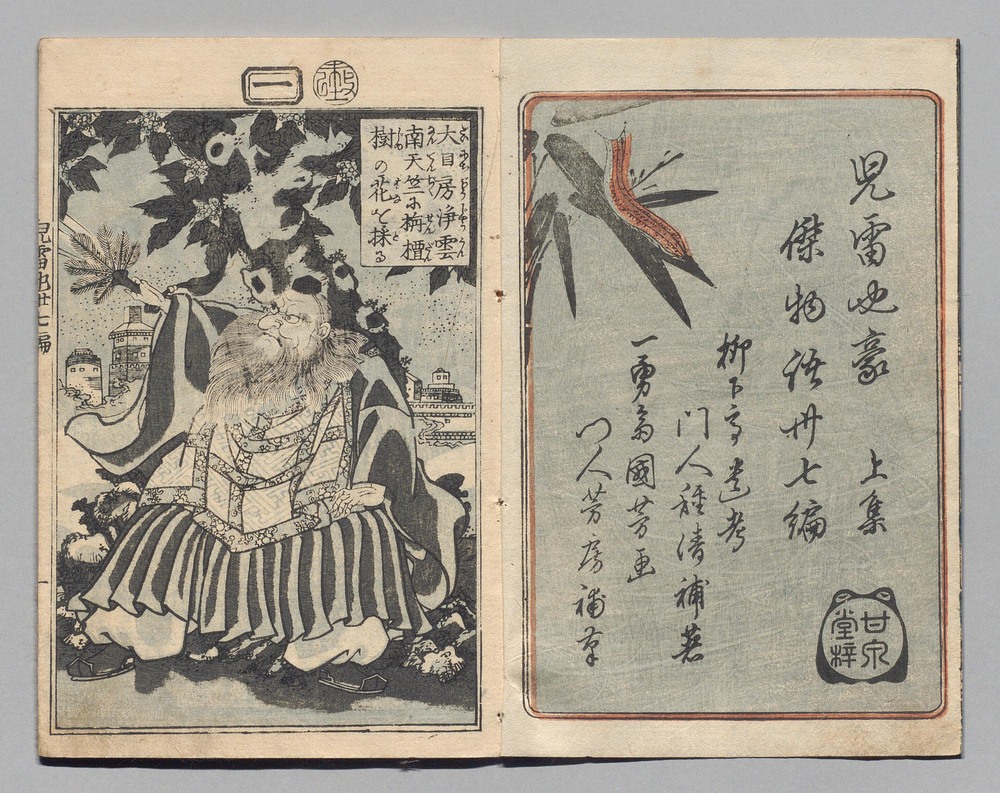 児雷也豪
傑物語丗七編
上集
柳下亭遺考
門人種清補著
一勇斎國芳画
門人芳房補筆
甘泉
堂梓
一
大日房浄雲
南天竺に栴檀
樹の花を採る
児雷也廿七編
一